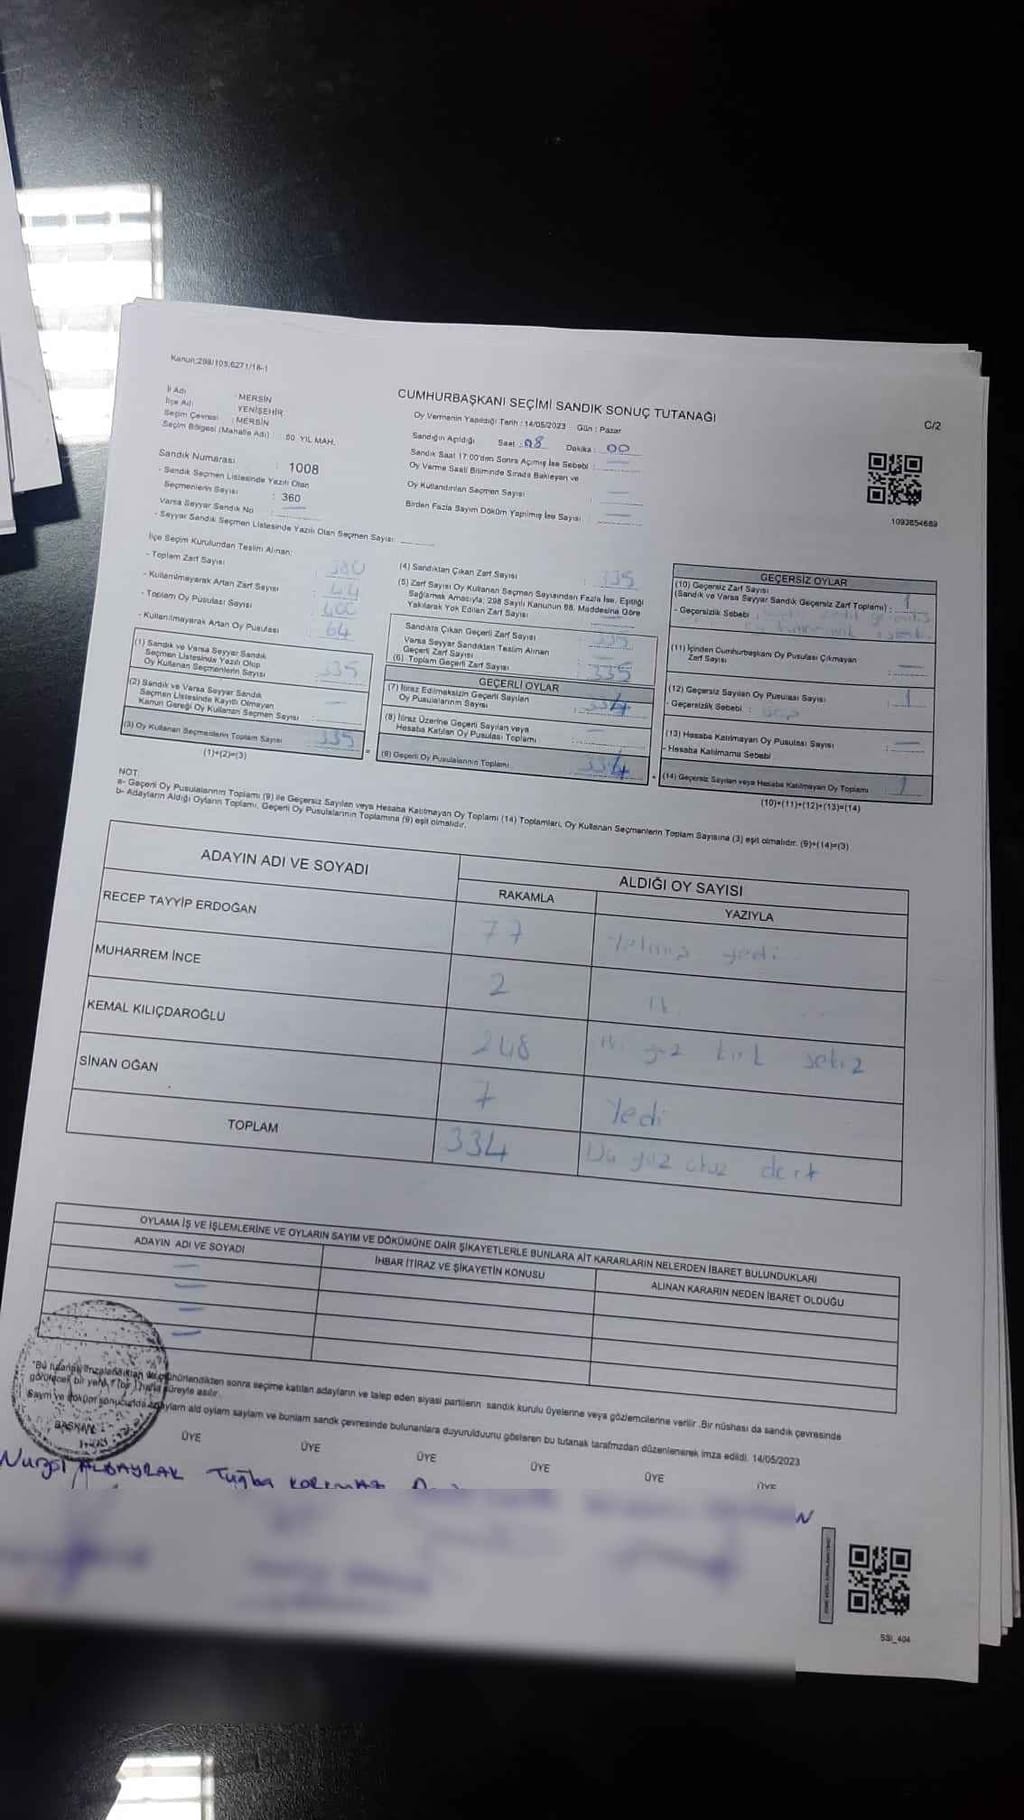 Kanun:298/105,6271/18-1
CUMHURBAŞKANI SEÇİMİ SANDIK SONUÇ TUTANAĞI
C/2
İl Adı : MERSİN
İlçe Adı : YENİŞEHİR
Seçim Çevresi : MERSİN
Seçim Bölgesi (Mahalle Adı) : 50. YIL MAH.
Sandık Numarası : 1008
- Sandık Seçmen Listesinde Yazılı Olan
Seçmenlerin Sayısı : 360
Varsa Seyyar Sandık No
- Seyyar Sandık Seçmen Listesinde Yazılı Olan Seçmen Sayısı
Oy Vermenin Yapıldığı Tarih : 14/05/2023 Gün : Pazar
Sandığın Açıldığı Saat : 08 Dakika : 00
Sandık Saat 17:00'den Sonra Açılmış İse Sebebi :
Oy Verme Saati Bitiminde Sırada Bekleyen ve
Oy Kullandırılan Seçmen Sayısı
Birden Fazla Sayım Döküm Yapılmış İse Sayısı
1093854689
İlçe Seçim Kurulundan Teslim Alınan:
- Toplam Zarf Sayısı : 380
- Kullanılmayarak Artan Zarf Sayısı : 44
- Toplam Oy Pusulası Sayısı : 400
- Kullanılmayarak Artan Oy Pusulası : 64
(1) Sandık ve Varsa Seyyar Sandık
Seçmen Listesinde Yazılı Olup
Oy Kullanan Seçmenlerin Sayısı : 335
(2) Sandık ve Varsa Seyyar Sandık
Seçmen Listesinde Kayıtlı Olmayan
Kanun Gereği Oy Kullanan Seçmen Sayısı :
(3) Oy Kullanan Seçmenlerin Toplam Sayısı : 335
(1)+(2)=(3)
(4) Sandıktan Çıkan Zarf Sayısı : 335
(5) Zarf Sayısı Oy Kullanan Seçmen Sayısından Fazla İse, Eşitliği
Sağlamak Amacıyla; 298 Sayılı Kanunun 98. Maddesine Göre
Yakılarak Yok Edilen Zarf Sayısı
Sandıkta Çıkan Geçerli Zarf Sayısı : 335
Varsa Seyyar Sandıktan Teslim Alınan
Geçerli Zarf Sayısı
(6) Toplam Geçerli Zarf Sayısı : 335
GEÇERLİ OYLAR
(7) İtiraz Edilmeksizin Geçerli Sayılan
Oy Pusulalarının Sayısı : 334
(8) İtiraz Üzerine Geçerli Sayılan veya
Hesaba Katılan Oy Pusulası Toplamı
(9) Geçerli Oy Pusulalarının Toplamı : 334
GEÇERSİZ OYLAR
(10) Geçersiz Zarf Sayısı
(Sandık ve Varsa Seyyar Sandık Geçersiz Zarf Toplamı) : 1
- Geçersizlik Sebebi :
(11) İçinden Cumhurbaşkanı Oy Pusulası Çıkmayan
Zarf Sayısı
(12) Geçersiz Sayılan Oy Pusulası Sayısı : 1
- Geçersizlik Sebebi :
(13) Hesaba Katılmayan Oy Pusulası Sayısı
- Hesaba Katılmama Sebebi
(14) Geçersiz Sayılan veya Hesaba Katılmayan Oy Toplamı 1
(10)+(11)+(12)+(13)=(14)
NOT:
a- Geçerli Oy Pusulalarının Toplamı (9) ile Geçersiz Sayılan veya Hesaba Katılmayan Oy Toplamı (14) Toplamları, Oy Kullanan Seçmenlerin Toplam Sayısına (3) eşit olmalıdır. (9)+(14)=(3)
b- Adayların Aldığı Oyların Toplamı, Geçerli Oy Pusulalarının Toplamına (9) eşit olmalıdır.
ADAYIN ADI VE SOYADI
ALDIĞI OY SAYISI
RAKAMLA YAZIYLA
RECEP TAYYİP ERDOĞAN 77 Yetmiş yedi
MUHARREM İNCE 2 İki
KEMAL KILIÇDAROĞLU 248 İki yüz kırk sekiz
SİNAN OĞAN 7 Yedi
TOPLAM 334 Üç yüz otuz dört
OYLAMA İŞ VE İŞLEMLERİNE VE OYLARIN SAYIM VE DÖKÜMÜNE DAİR ŞİKAYETLERLE BUNLARA AİT KARARLARIN NELERDEN İBARET BULUNDUKLARI
ADAYIN ADI VE SOYADI İHBAR İTİRAZ VE ŞİKAYETİN KONUSU ALINAN KARARIN NEDEN İBARET OLDUĞU
"Bu tutanak imzalandıktan ve mühürlendikten sonra seçime katılan adayların ve talep eden siyasi partilerin sandık kurulu üyelerine veya gözlemcilerine verilir. Bir nüshası da sandık çevresinde
görülecek bir yere 1 (bir) hafta süreyle asılır.
Sayım ve döküm sonucunda adayların aldığı oyların sayılarını ve bunların sandık çevresinde bulunanlara duyurulduğunu gösteren bu tutanak tarafımızdan düzenlenerek imza edildi. 14/05/2023
BAŞKAN ÜYE ÜYE ÜYE ÜYE ÜYE ÜYE
ALBAYRAK Tuğba KORKMAZ
SSI_404